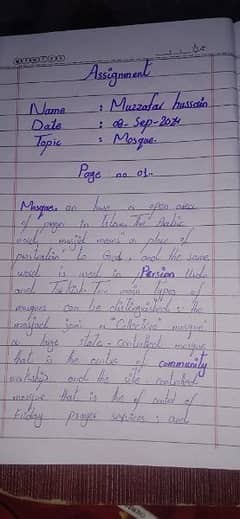 Assignment
Name : Muzzafar hussain
Date : 08-Sep-2024
Topic : Mosque.
Page no 01.
Mosque, an have a open area
of prayer in Islam. The Arabic
word masjid means "a place of
prostration" to God, and the same
word is used in Persian Urdu
and Turkish. Two main types of
mosques can be distinguished: the
masjad jami a "Collective mosque"
a large state-controlled mosque
that is the center of community
worship and the site
mosque that is the of
Friday prayer services; and